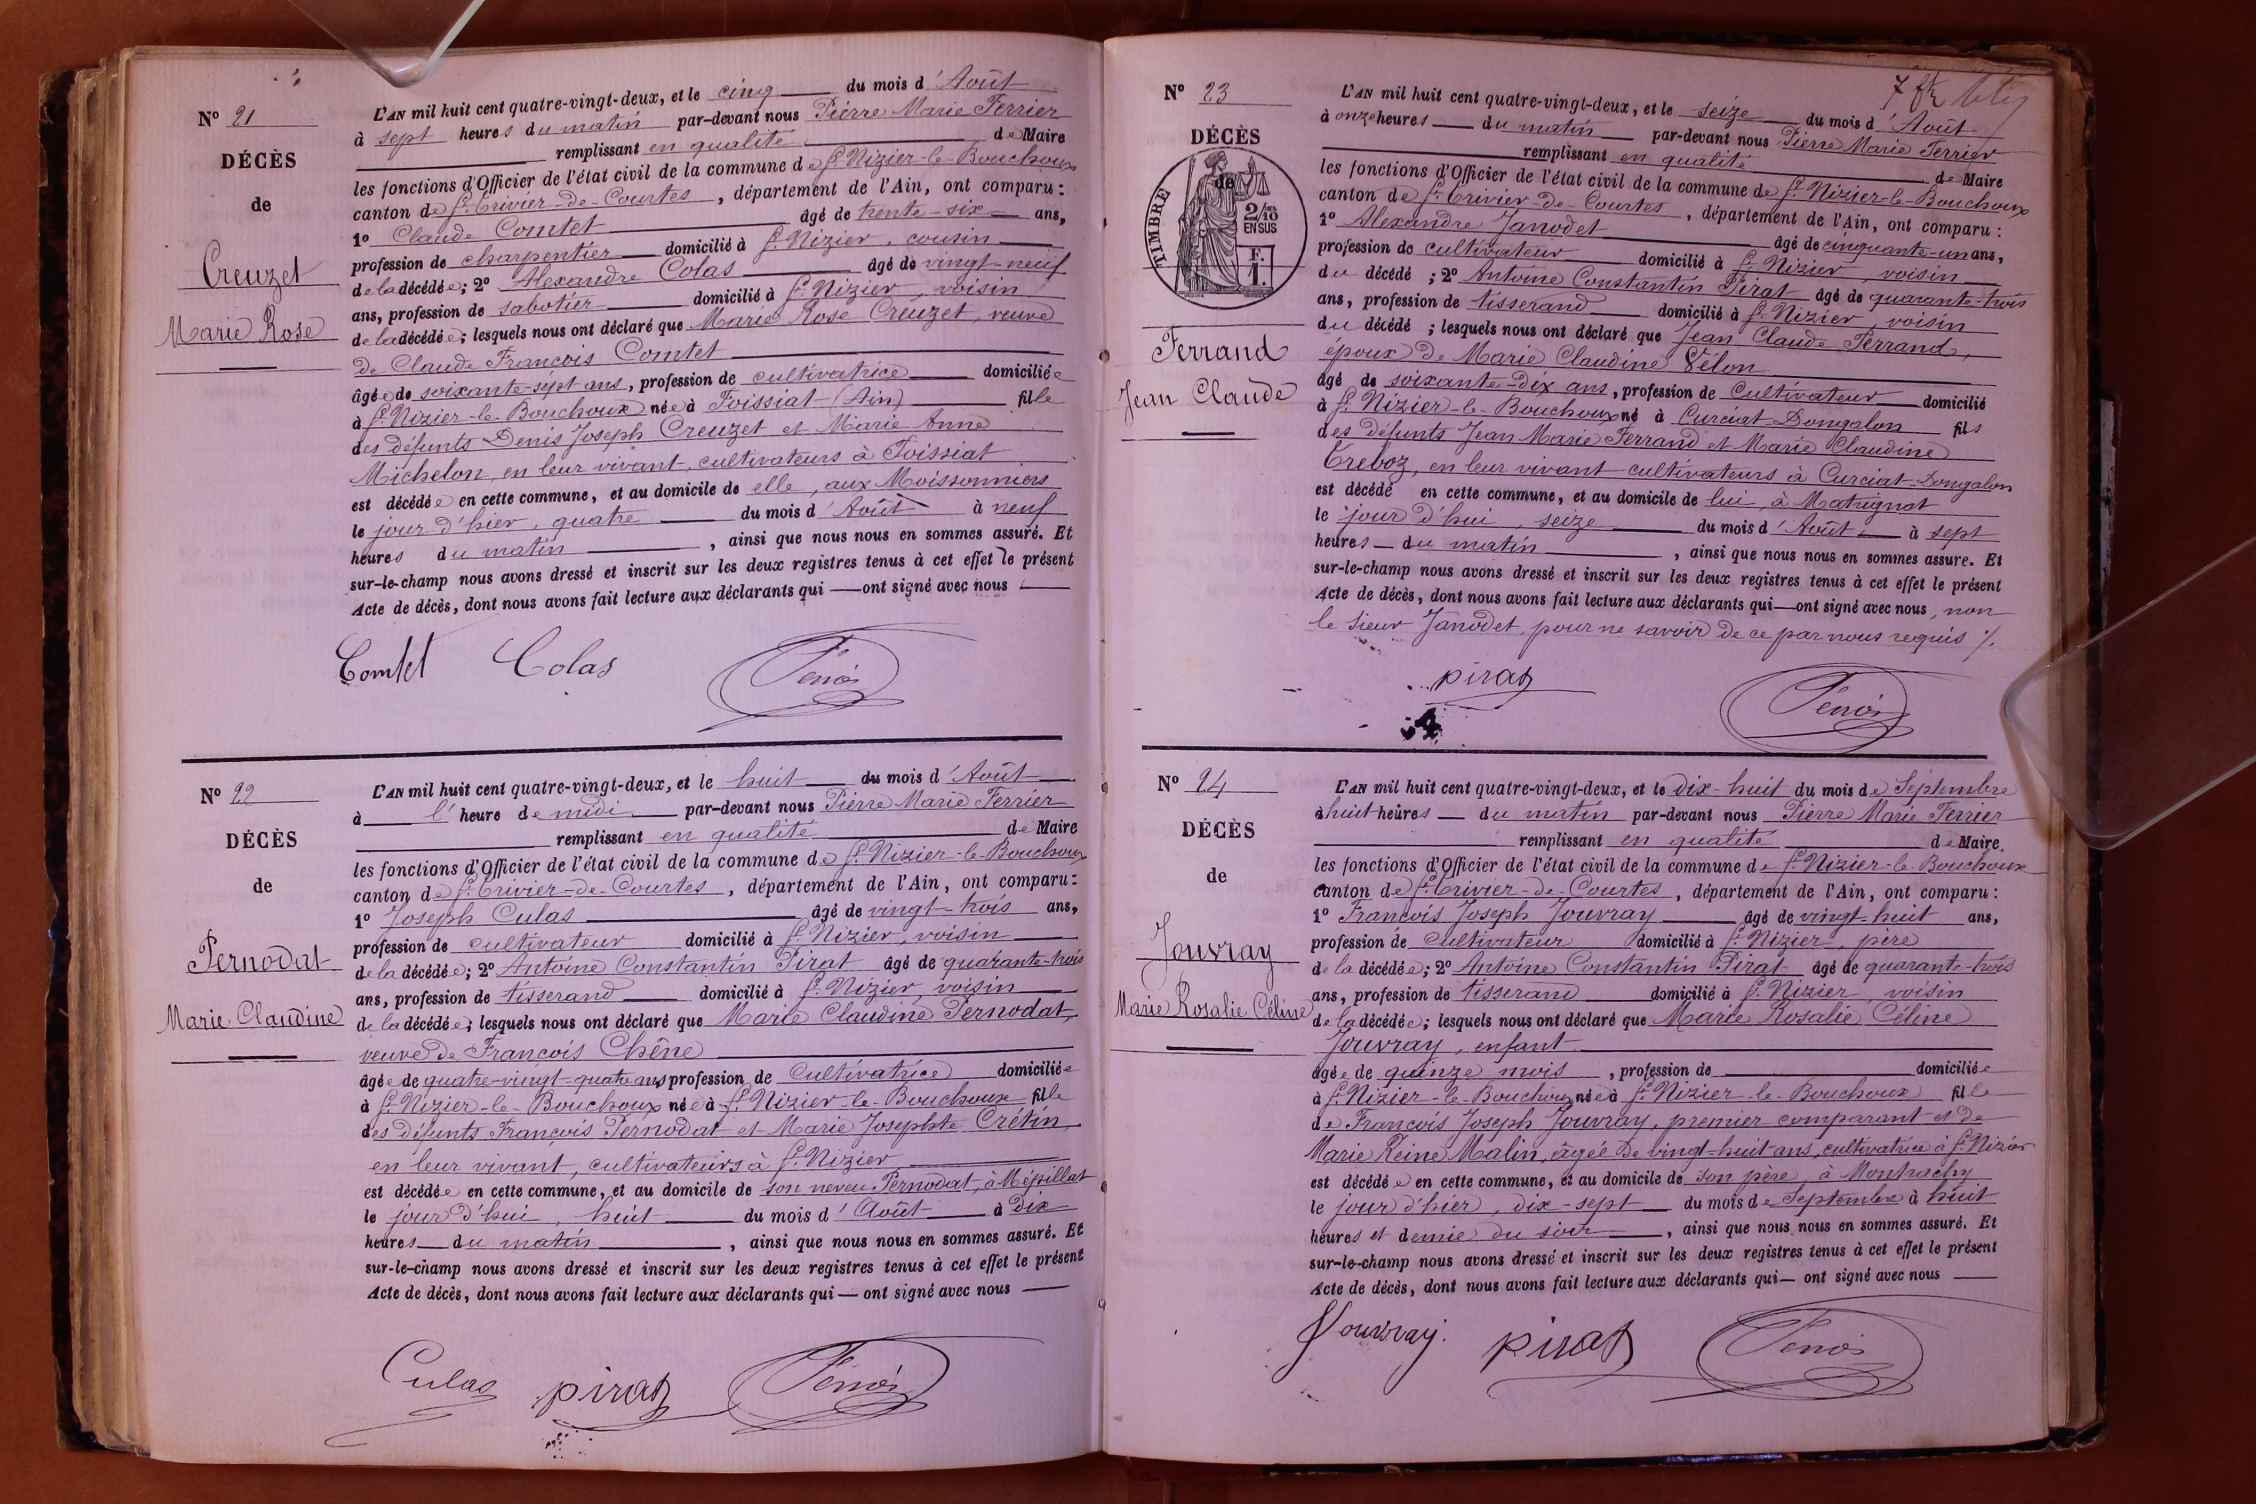 N° 21
DÉCÈS
de
Creuzet
Marie Rose
L'AN mil huit cent quatre-vingt-deux, et le cinq du mois d'Août
à sept heures du matin par-devant nous Pierre Marie Ferrier
remplissant en qualité de Maire
les fonctions d'Officier de l'état civil de la commune de St Nizier-le-Bouchoux
canton de St Trivier-de-Courtes, département de l'Ain, ont comparu :
1° Claude Comtet âgé de trente-six ans,
profession de charpentier domicilié à St Nizier, cousin
de la décédée; 2° Alexandre Colas âgé de vingt-neuf
ans, profession de sabotier domicilié à St Nizier, voisin
de la décédée; lesquels nous ont déclaré que Marie Rose Creuzet, veuve
de Claude François Comtet
âgée de soixante-sept ans, profession de cultivatrice domiciliée
à St Nizier-le-Bouchoux née à Foissiat (Ain) fille
des défunts Denis Joseph Creuzet et Marie Anne
Michelon, en leur vivant, cultivateurs à Foissiat
est décédée en cette commune, et au domicile de elle, aux Moissonniers
le jour d'hier, quatre du mois d'Août à neuf
heures du matin, ainsi que nous nous en sommes assuré. Et
sur-le-champ nous avons dressé et inscrit sur les deux registres tenus à cet effet le présent
Acte de décès, dont nous avons fait lecture aux déclarants qui — ont signé avec nous
Comtet Colas Ferrier
N° 22
DÉCÈS
de
Pernodat
Marie Claudine
L'AN mil huit cent quatre-vingt-deux, et le huit du mois d'Août
à l'heure de midi par-devant nous Pierre Marie Ferrier
remplissant en qualité de Maire
les fonctions d'Officier de l'état civil de la commune de St Nizier-le-Bouchoux
canton de St Trivier-de-Courtes, département de l'Ain, ont comparu :
1° Joseph Culas âgé de vingt-trois ans,
profession de cultivateur domicilié à St Nizier, voisin
de la décédée; 2° Antoine Constantin Pirat âgé de quarante-trois
ans, profession de tisserand domicilié à St Nizier, voisin
de la décédée; lesquels nous ont déclaré que Marie Claudine Pernodat,
veuve de François Chêne
âgée de quatre-vingt-quatre ans profession de Cultivatrice domiciliée
à St Nizier-le-Bouchoux née à St Nizier-le-Bouchoux fille
des défunts François Pernodat et Marie Josephte Crétin,
en leur vivant, cultivateurs à St Nizier
est décédée en cette commune, et au domicile de son neveu Pernodat, à Mépillat
le jour d'hui, huit du mois d'Août à dix
heures du matin, ainsi que nous nous en sommes assuré. Et
sur-le-champ nous avons dressé et inscrit sur les deux registres tenus à cet effet le présent
Acte de décès, dont nous avons fait lecture aux déclarants qui — ont signé avec nous
Culas pirat Ferrier
N° 23
DÉCÈS
de
TIMBRE
2/10 EN SUS
F. 1.
Ferrand
Jean Claude
L'AN mil huit cent quatre-vingt-deux, et le seize du mois d'Août
à onze heures du matin par-devant nous Pierre Marie Ferrier
remplissant en qualité de Maire
les fonctions d'Officier de l'état civil de la commune de St Nizier-le-Bouchoux
canton de St Trivier-de-Courtes, département de l'Ain, ont comparu :
1° Alexandre Janodet âgé de cinquante-un ans,
profession de cultivateur domicilié à St Nizier, voisin
du décédé; 2° Antoine Constantin Pirat âgé de quarante-trois
ans, profession de tisserand domicilié à St Nizier, voisin
du décédé; lesquels nous ont déclaré que Jean Claude Ferrand,
époux de Marie Claudine Vélon
âgé de soixante-dix ans, profession de Cultivateur domicilié
à St Nizier-le-Bouchoux né à Curciat-Dongalon fils
des défunts Jean Marie Ferrand et Marie Claudine
Treboz, en leur vivant cultivateurs à Curciat-Dongalon
est décédé en cette commune, et au domicile de lui, à Matrignat
le jour d'hui, seize du mois d'Août à sept
heures du matin, ainsi que nous nous en sommes assuré. Et
sur-le-champ nous avons dressé et inscrit sur les deux registres tenus à cet effet le présent
Acte de décès, dont nous avons fait lecture aux déclarants qui — ont signé avec nous, non
le sieur Janodet, pour ne savoir de ce par nous requis %.
pirat Ferrier
N° 24
DÉCÈS
de
Jouvray
Marie Rosalie Céline
L'AN mil huit cent quatre-vingt-deux, et le dix-huit du mois de Septembre
à huit heures du matin par-devant nous Pierre Marie Ferrier
remplissant en qualité de Maire
les fonctions d'Officier de l'état civil de la commune de St Nizier-le-Bouchoux
canton de St Trivier-de-Courtes, département de l'Ain, ont comparu :
1° François Joseph Jouvray âgé de vingt-huit ans,
profession de Cultivateur domicilié à St Nizier, père
de la décédée; 2° Antoine Constantin Pirat âgé de quarante-trois
ans, profession de tisserand domicilié à St Nizier, voisin
de la décédée; lesquels nous ont déclaré que Marie Rosalie Céline
Jouvray, enfant
âgée de quinze mois, profession de domiciliée
à St Nizier-le-Bouchoux née à St Nizier-le-Bouchoux fille
de François Joseph Jouvray, premier comparant et de
Marie Reine Malin, âgée de vingt-huit ans, cultivatrice à St Nizier
est décédée en cette commune, et au domicile de son père, à Montrachy
le jour d'hier, dix-sept du mois de Septembre à huit
heures et demie du soir, ainsi que nous nous en sommes assuré. Et
sur-le-champ nous avons dressé et inscrit sur les deux registres tenus à cet effet le présent
Acte de décès, dont nous avons fait lecture aux déclarants qui — ont signé avec nous
Jouvray. pirat Ferrier